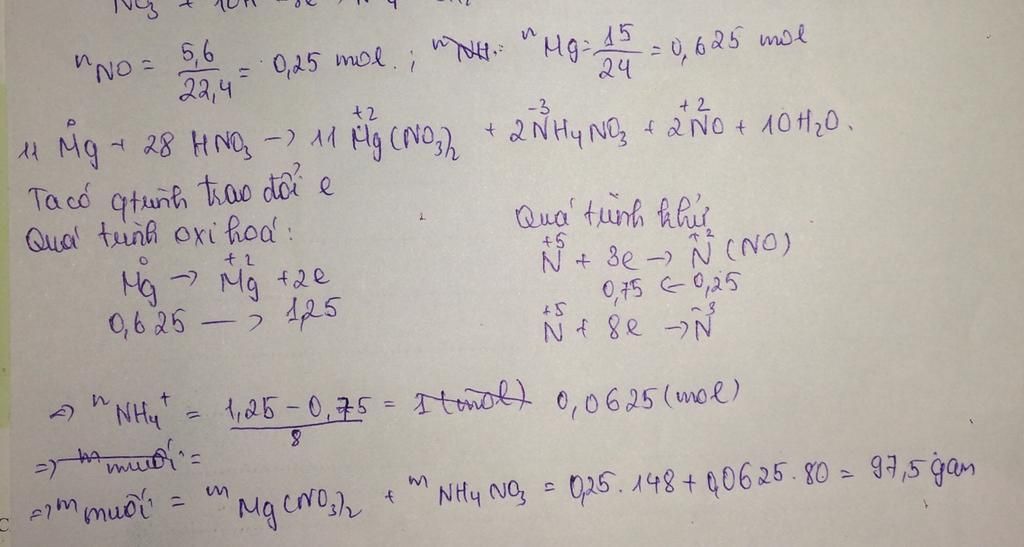 nNO = 5,6/22,4 = 0,25 mol. ; nMg = 15/24 = 0,625 mol
11 Mg⁰ + 28 HNO₃ → 11 Mg⁺²(NO₃)₂ + 2N⁻³H₄NO₃ + 2N⁺²O + 10H₂O.
Ta có qtrình trao đổi e
Quá trình oxi hoá:
Mg⁰ → Mg⁺² + 2e
0,625 → 1,25
Quá trình khử
N⁺⁵ + 3e → N⁺² (NO)
0,75 ← 0,25
N⁺⁵ + 8e → N⁻³
⇒ nNH₄⁺ = (1,25 - 0,75)/8 = 0,0625 (mol)
⇒ m muối =
⇒ m muối = mMg(NO₃)₂ + mNH₄NO₃ = 0,25.148 + 0,0625.80 = 97,5 gam